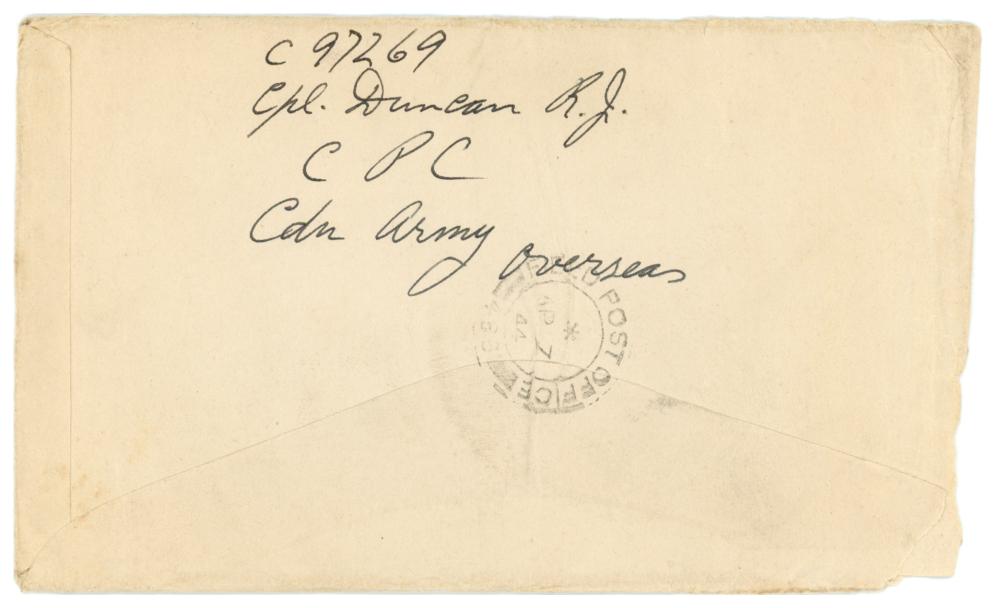 C 97269
Cpl. Duncan R.J.
C P C
Cdn Army
overseas
FIELD POST OFFICE
AP 7
44
*